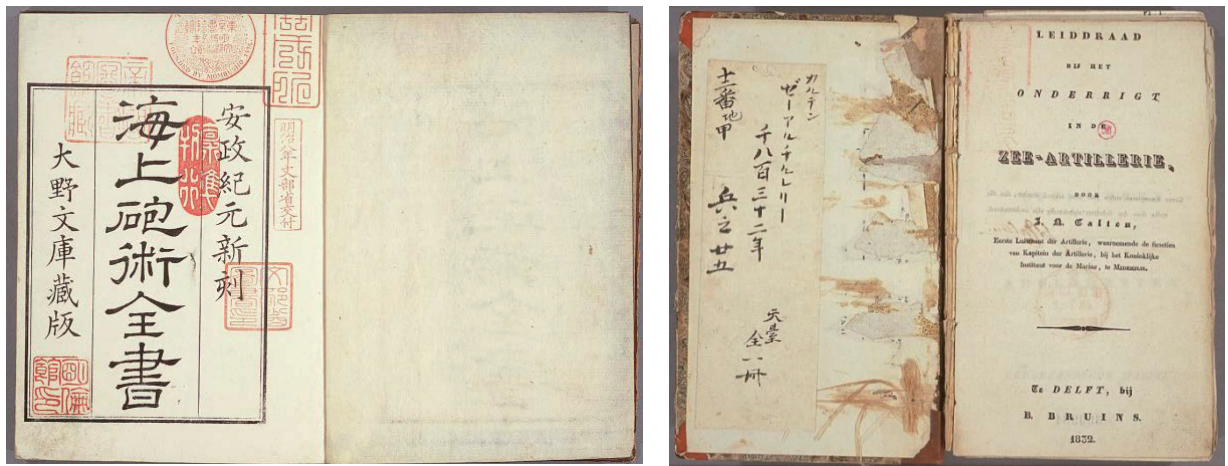 安政紀元新刻
海上砲術全書
大野文庫藏版
明治八年文部省交付
FOUNDED BY MOMBUSHO 1872
カルテン
ゼーアルチルレリー
千八百三十二年
兵之廿五
十二番地甲
天臺
全一冊
LEIDDRAAD
BIJ HET
ONDERRIGT
IN DE
ZEE-ARTILLERIE,
DOOR
J. N. Calten,
Eerste Luitenant der Artillerie, waarnemende de functien
van Kapitein der Artillerie, bij het Koninklijke
Instituut voor de Marine, te MEDEMBLIK.
Te DELFT, bij
B. BRUINS.
1832.